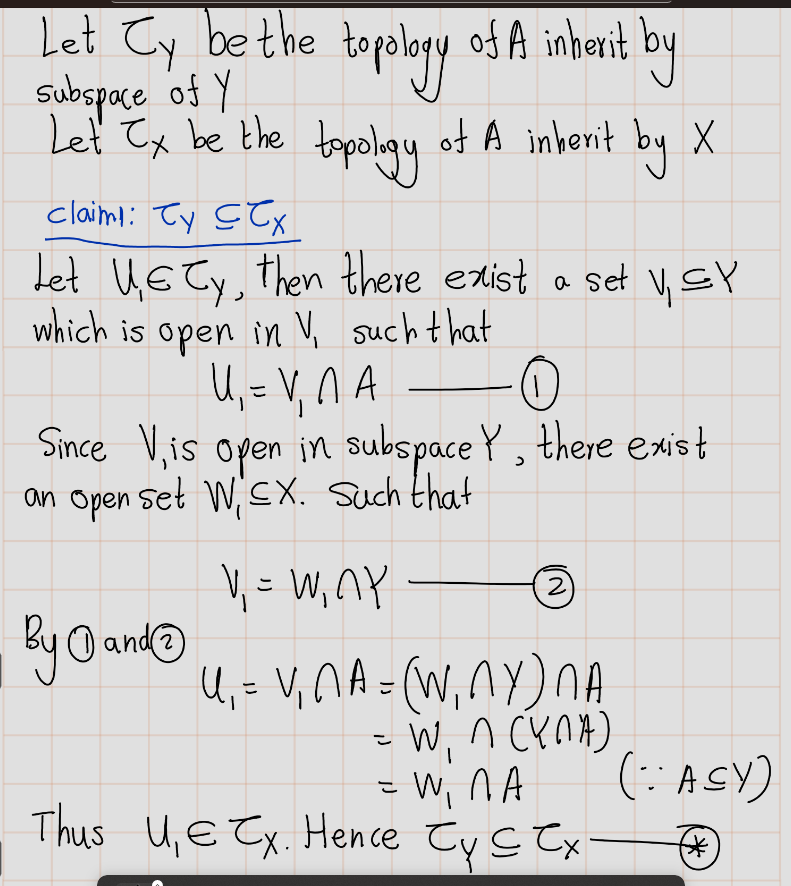 Let τ_Y be the topology of A inherit by
subspace of Y
Let τ_X be the topology of A inherit by X
claim1: τ_Y ⊆ τ_X
Let U₁ ∈ τ_Y, then there exist a set V₁ ⊆ Y
which is open in V₁ such that
U₁ = V₁ ∩ A ——— ①
Since V₁ is open in subspace Y, there exist
an open set W₁ ⊆ X. Such that
V₁ = W₁ ∩ Y ——— ②
By ① and ②
U₁ = V₁ ∩ A = (W₁ ∩ Y) ∩ A
= W₁ ∩ (Y ∩ A)
= W₁ ∩ A (∵ A ⊆ Y)
Thus U₁ ∈ τ_X. Hence τ_Y ⊆ τ_X ——— ⊛